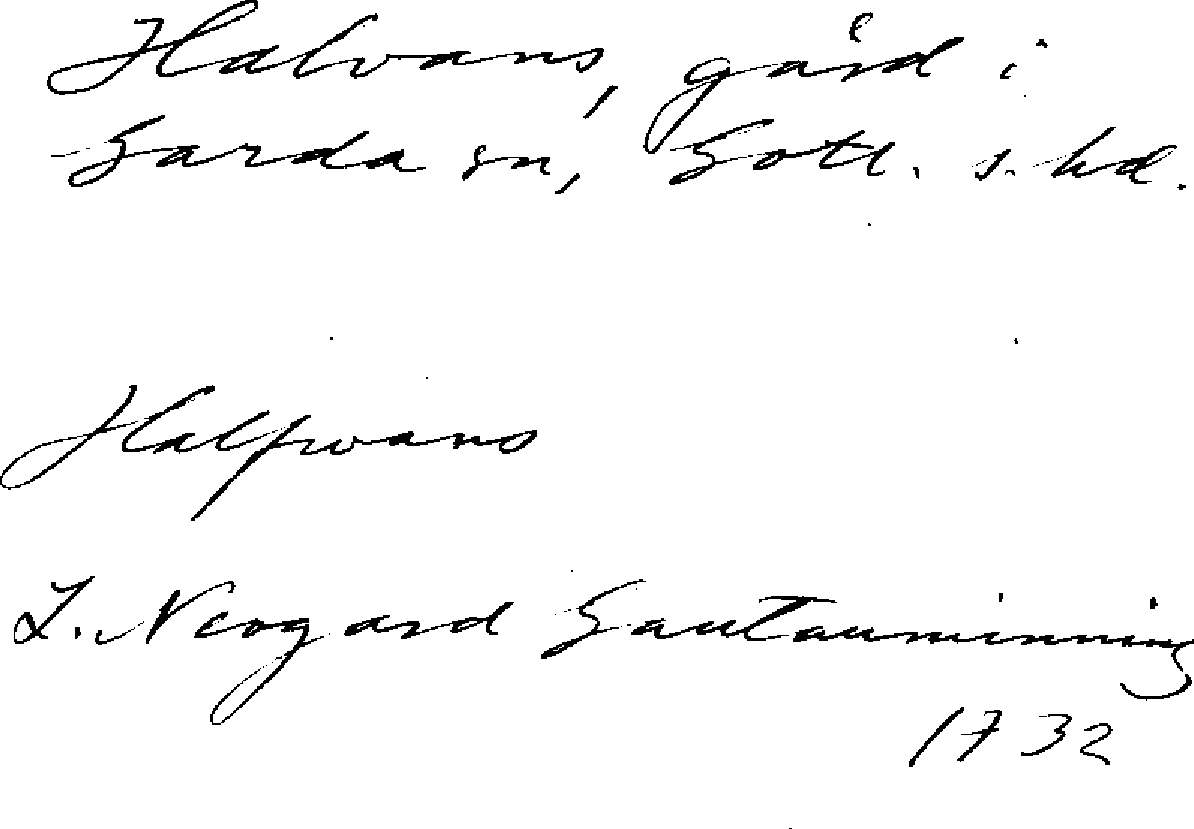 Halvans, gård i
Garda sn, Gotl. s. hd.
Halfwans
L. Neogard Gautauminning
1732